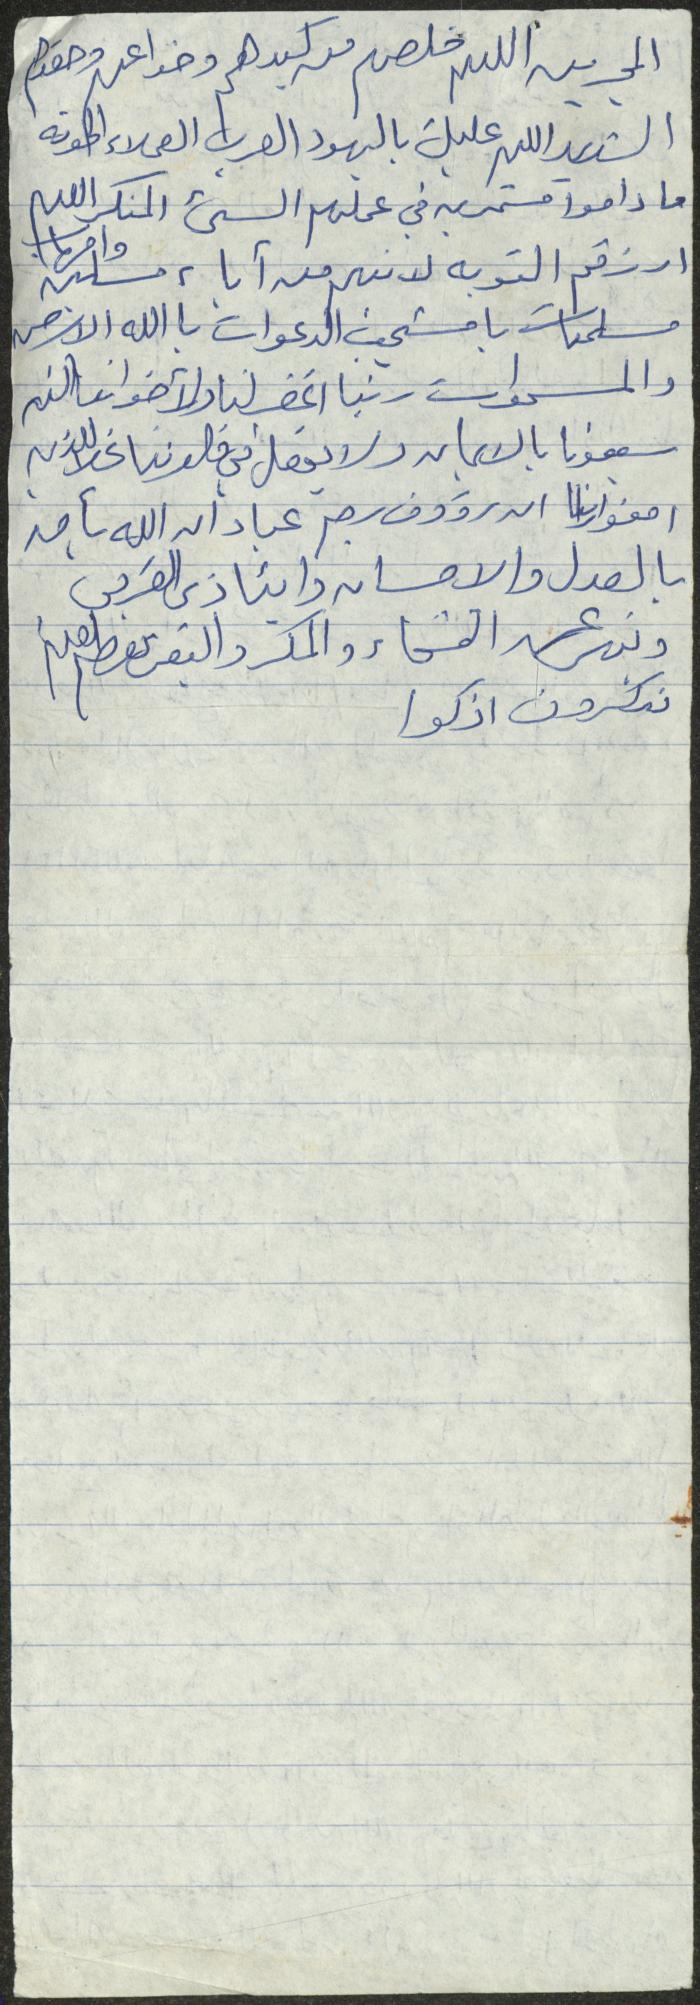 المجرمين اللهم خلصهم من كيدهم وخداعهم وحقدهم
الشديد اللهم عليك باليهود العرب العملاء الخونه
ما داموا مستمرين في عملهم السيئ المنكر اللهم
ارزقهم التوبه لانهم من آباء مسلمين وامهات
مسلمات يا مستجيب الدعوات يا الله الارض
والسموات ربنا اغفر لنا ولأخواننا الذين
سبقونا بالايمان ولا تجعل في قلوبنا غلا للذين
امنوا ربنا انك رؤوف رحيم عباد الله ان الله يأمر
بالعدل والاحسان وايتا ذي القربى
وينهى عن الفحشاء والمنكر والبغى يعظكم لعلكم
تذكرون اذكروا